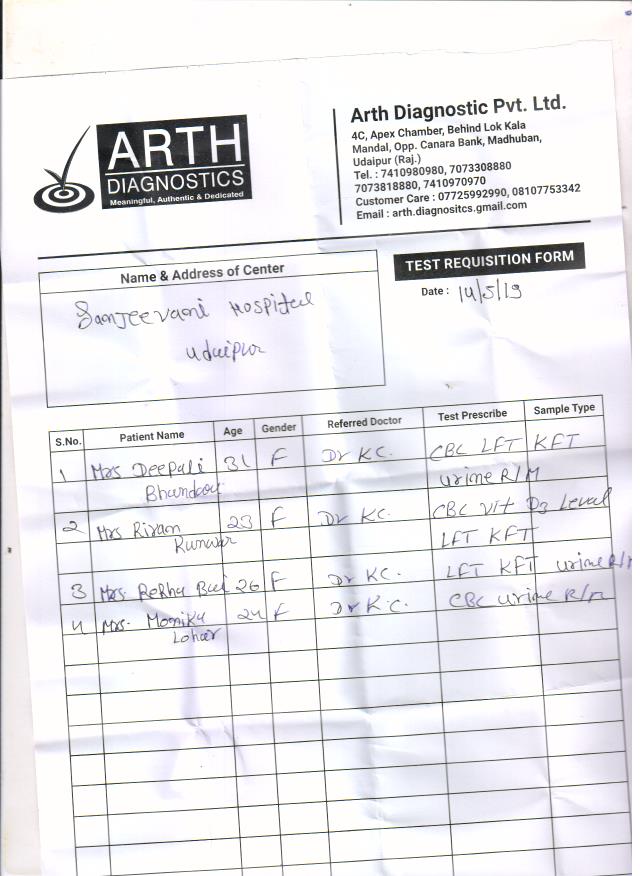 ARTH
DIAGNOSTICS
Meaningful, Authentic & Dedicated
Arth Diagnostic Pvt. Ltd.
4C, Apex Chamber, Behind Lok Kala
Mandal, Opp. Canara Bank, Madhuban,
Udaipur (Raj.)
Tel. : 7410980980, 7073308880
7073818880, 7410970970
Customer Care : 07725992990, 08107753342
Email : arth.diagnositcs.gmail.com
Name & Address of Center
Sanjeevani Hospital
Udaipur
TEST REQUISITION FORM
Date : 14/5/19
S.No. Patient Name Age Gender Referred Doctor Test Prescribe Sample Type
1 Mrs Deepali 31 F Dr KC. CBC LFT KFT
Bhandari urine R/M
2 Mrs 23 F Dr KC. CBC Vit D3 Level
Kunwar LFT KFT
3 Mrs. Rekha Bai 26 F Dr KC. LFT KFT urine R/M
4 Mrs. Monika 24 F Dr K.C. CBC urine R/M
Lohar